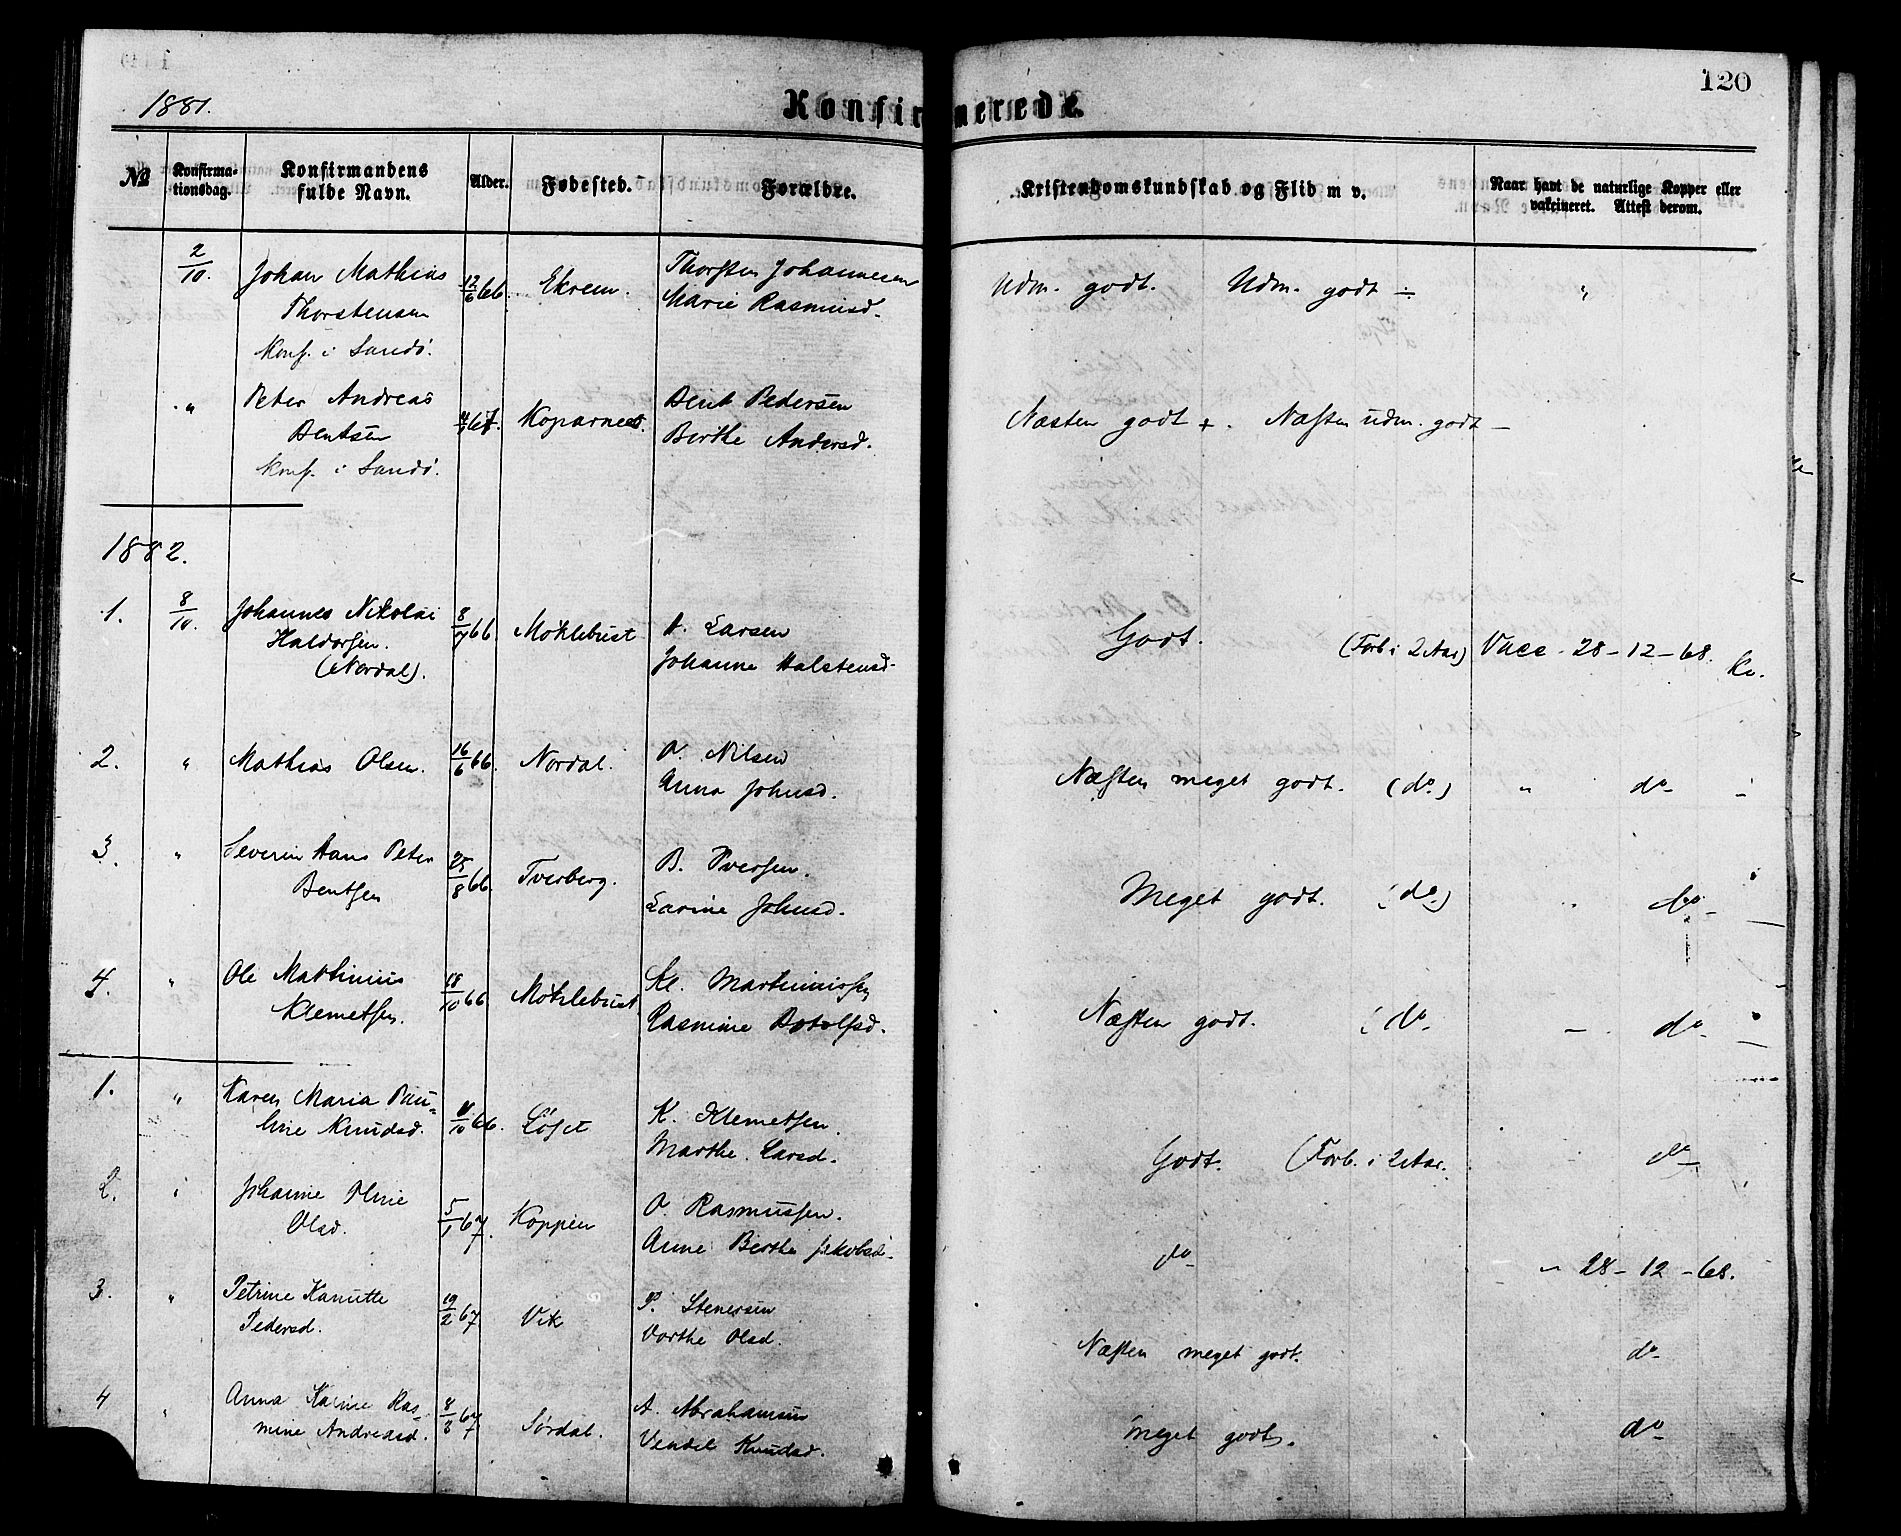 120
1881.
Konfirmerede.
No
Konfirma-
tionsdag.
Konfirmandens
fulde Navn.
Alder.
Fødested.
Forældre.
Kristendomskundskab og Flid m v.
Naar havt de naturlige Kopper eller
vakcineret. Attest derom.
2/10. Johan Mathias 12/6 66. Ekrem. Thorsten Johannesen Udm. godt. Udm. godt ÷ "
Thorstensen Marie Rasmusd.
Konf. i Sandö.
" Peter Andreas 67. Koparnes. Bent Pedersen Næsten godt +. Næsten udm. godt –
Bentsen Berthe Andersd.
Konf. i Sandö.
1882.
1. 8/10. Johannes Nikolai 8/7 66. Möklebust H. Larsen Godt. (Forb. i 2 Aar) Vacc. 28-12-68.
Haldorsen. Johanne Halstensd.
(Nordal).
2. " Mathias Olsen. 16/6 66. Nordal. O. Nilsen Næsten meget godt. (do) " do
Anna Johnsd.
3. " Severin Hans Peter 25/8 66. Tverberg. B. Iversen. Meget godt. (do) " do
Bentsen Larine Johnsd.
4. " Ole Martinius 18/10 66. Möklebust Kl. Martinussen Næsten godt. (do – do
Klemetsen. Rasmine Botolfsd.
1. " Karen Maria Pau- 66. Löset K. Klemetsen. Godt. (Forb. i 2 Aar. do
line Knudsd. Marthe Larsd.
2. " Johanne Oline 5/1 67. Koppen O. Rasmussen. do " 28-12-68.
Olsd. Anne Berthe Jakobsd.
3. " Petrine Kanutte 19/2 67 Vik P. Stenersen Næsten meget godt. do
Pedersd. Dorthe Olsd.
4 " Anna Karine Ras- 8/3 67 Sördal. A. Abrahamsen meget godt. do
mine Andreasd. Vendel Knudsd.